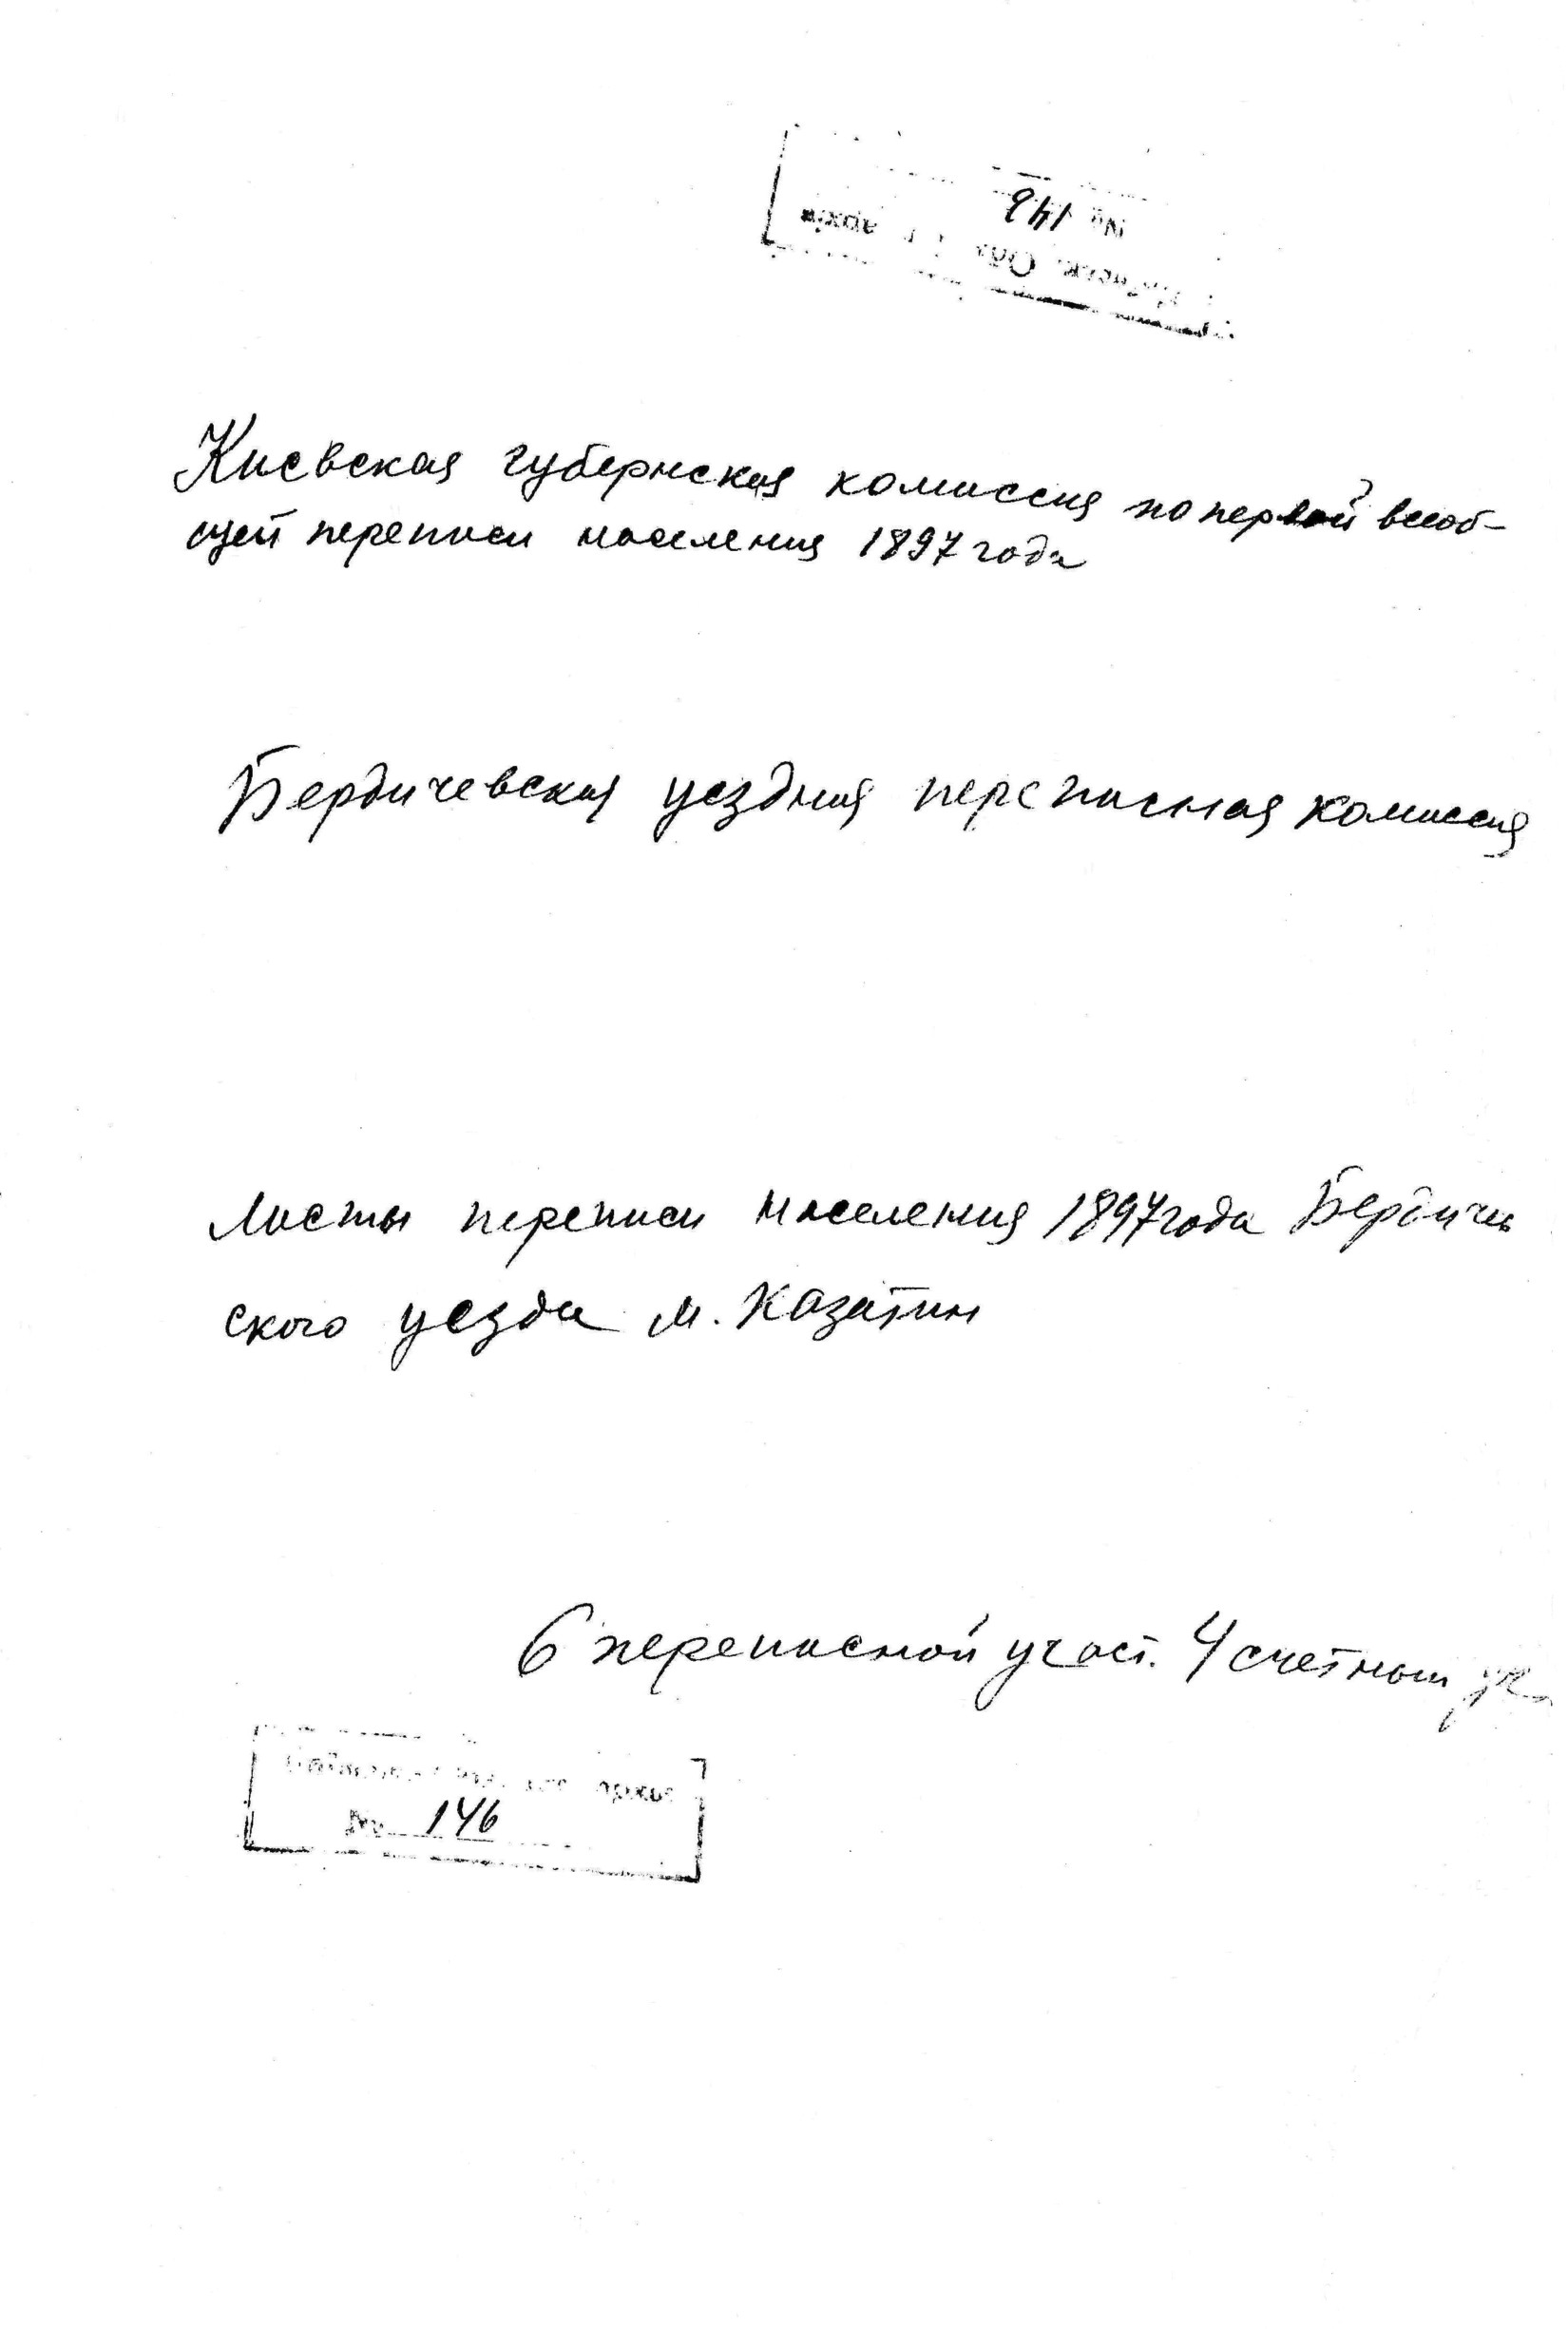 № 148
Киевская губернская комиссия по первой всеоб-
щей переписи населения 1897 года
Бердичевская уездная переписная комиссия
Листы переписи населения 1897 года Бердичев
ского уезда м. Казатин
6 переписной участ. 4 счетный уч
архив
№ 146